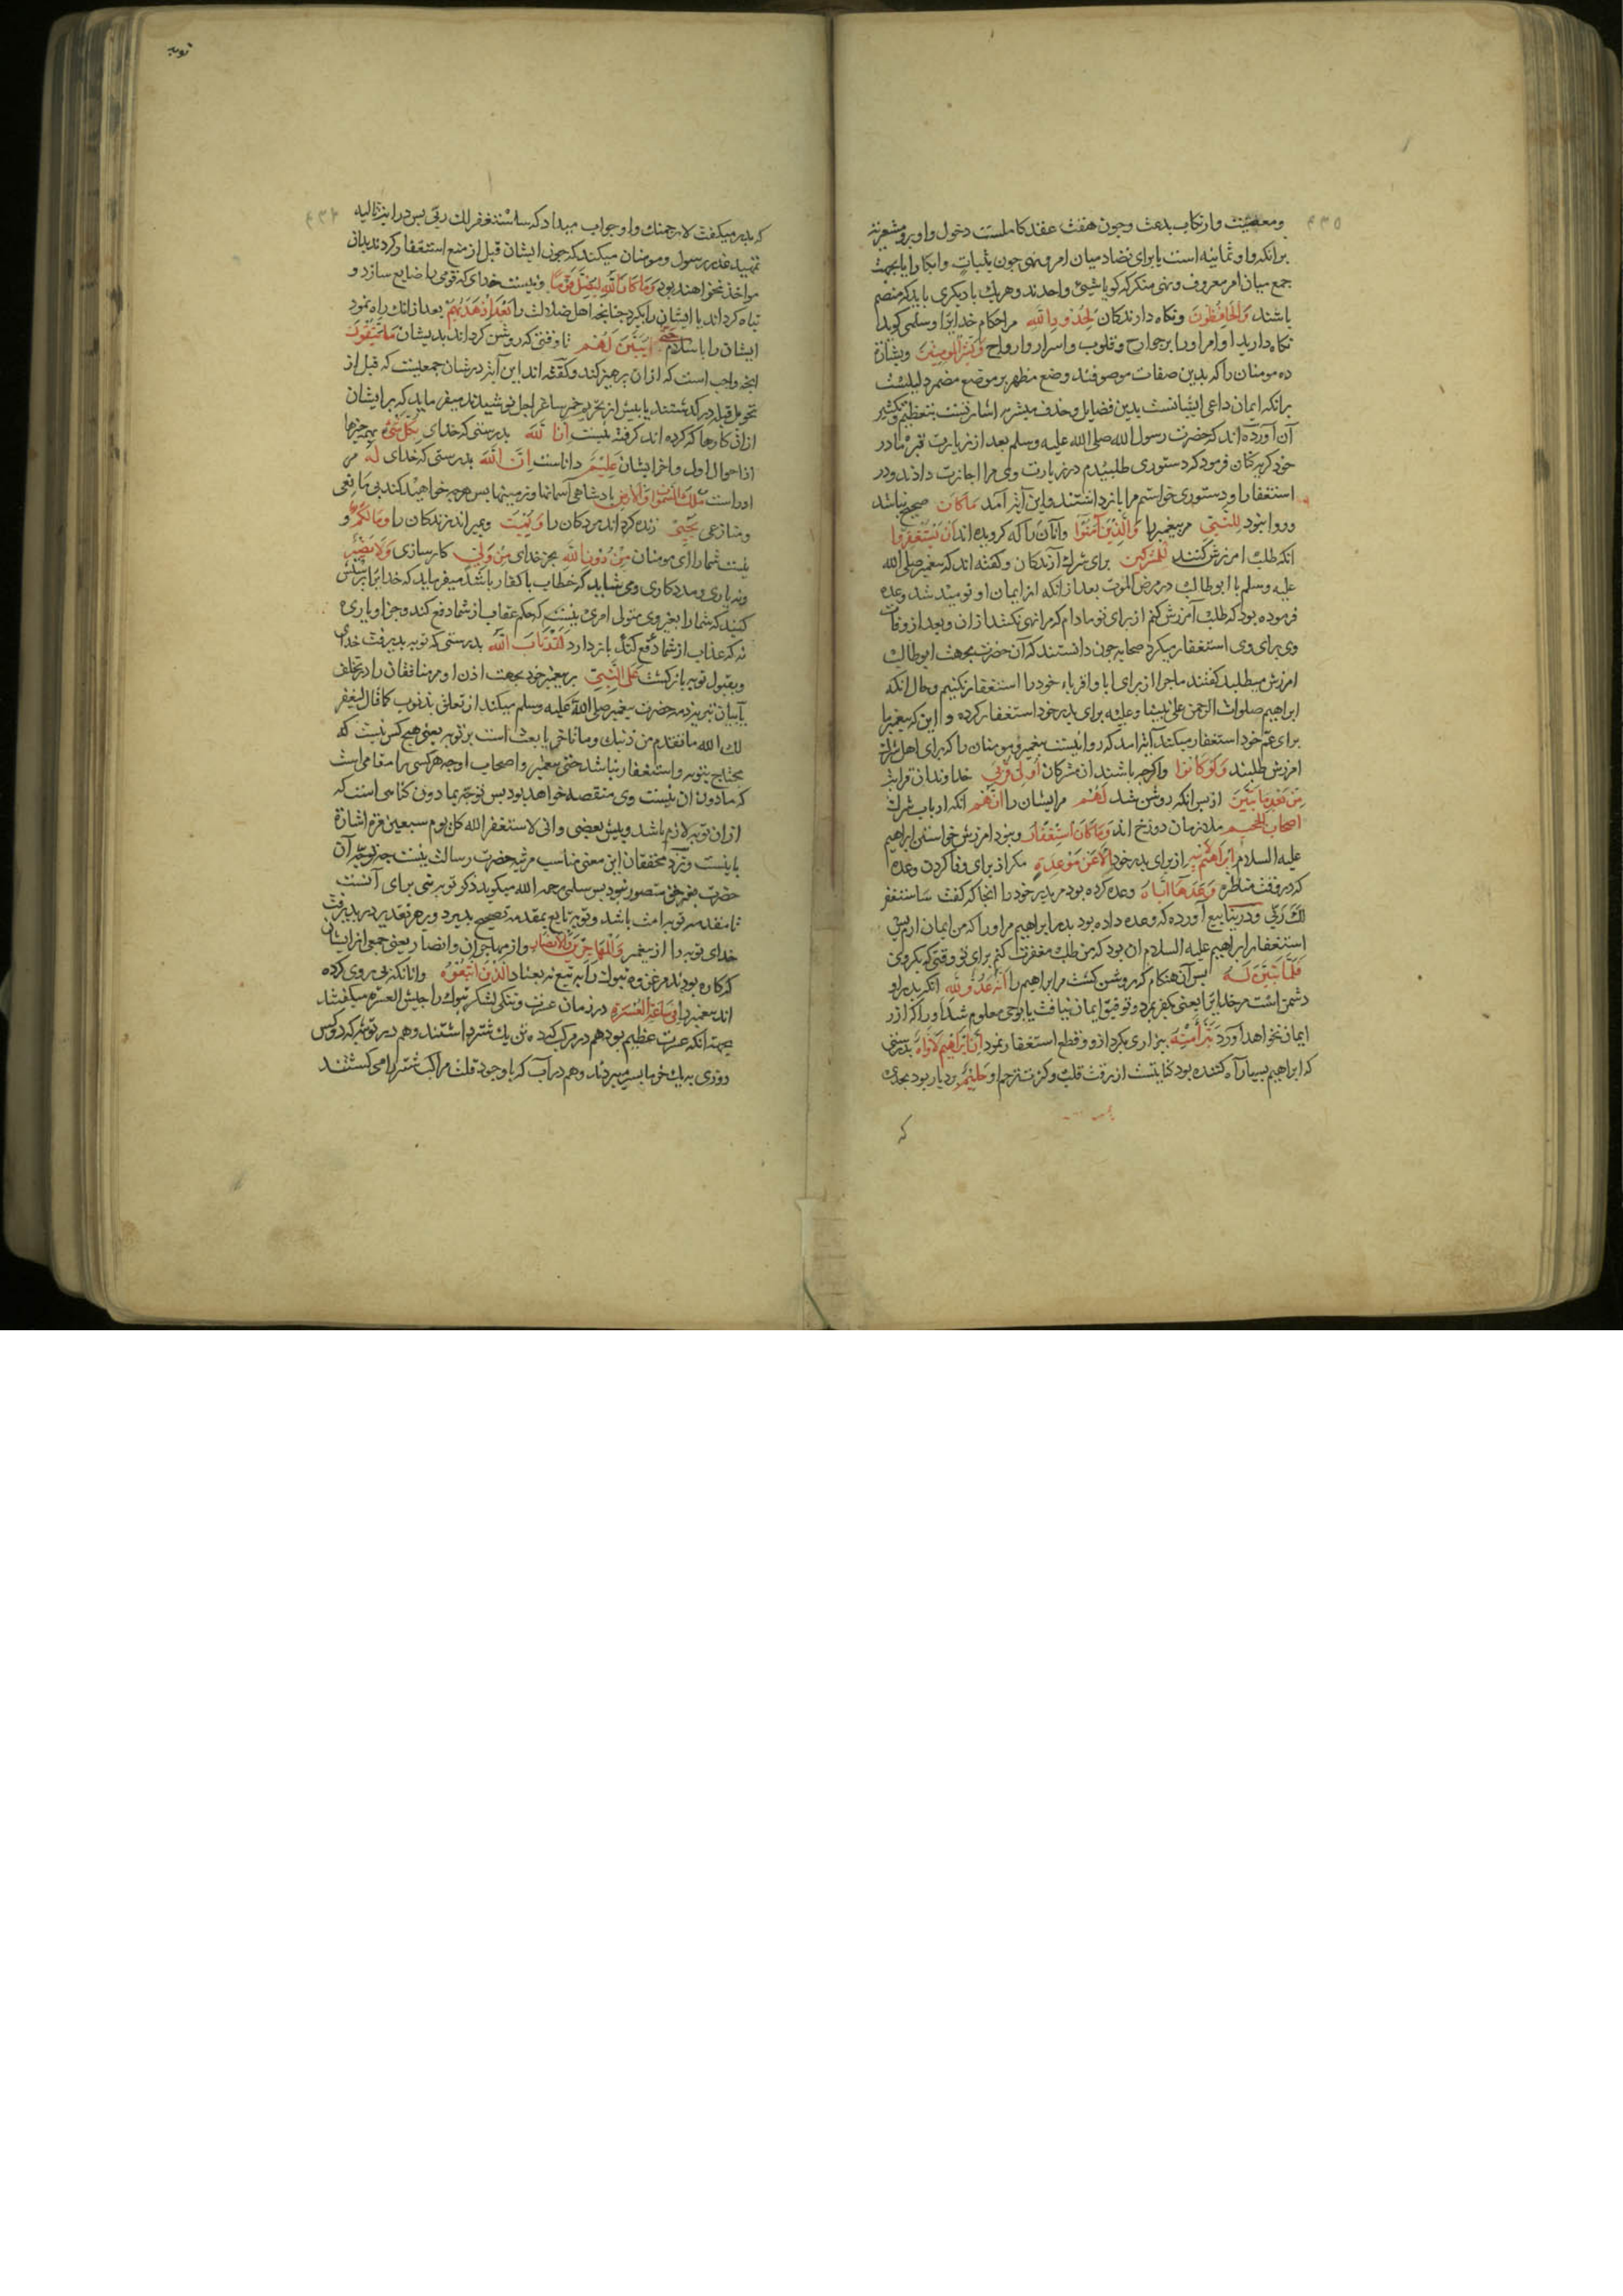 ٤٣٥
ومعصیت وارتکاب بدعت وچون هفت عقد کاملست دخول واو برو مشعرنه
برانکه واو ثمانیه است یا برای تضاد میان امر ونهی چون ثیبات وابکارا یا بجهت
جمع میان امر معروف ونهی منکر که کویا شیئ واحدند وهریک با دیکری باید که منضم
باشند وَالحَافِظُونَ ونکاه دارندکان لِحُدُودِ اللهِ مر احکام خدایرا وسلمی کوید
نکاه دارید اوامر اورا بر جوارح وقلوب واسرار وارواح وَبَشِّرِ المُومِنِينَ وبشارة
ده مومنان را که بدین صفات موصوفند وضع مظهر بر موضع مضمر دلیلست
برانکه ایمان داعی ایشانست بدین فضایل وحذف مبشر به اشارتست بتعظیم وتکثیر
آن آورده اند که حضرت رسول الله صلی الله علیه وسلم بعد از زیارت قبر مادر
خود کریه کنان فرمود که دستوری طلبیدم در زیارت وی مرا اجازت دادند ودر
استغفار او دستوری خواستم مرا باز داشتند واین آیه آمد مَاکَانَ صحیح نباشد
وروا نبود لِلنَّبِيِّ مر پیغمبر را وَالَّذِينَ آمَنُوا وآنان را که کرویده اند اَنْ يَسْتَغْفِرُوا
انکه طلب امرزش کنند لِلْمُشْرِكِينَ برای شرک آرندکان وکفته اند که پیغمبر صلی الله
علیه وسلم با ابوطالب در مرض الموت بعد از انکه از ایمان او نومید شد وعده
فرموده بود که طلب آمرزش کنم از برای تو مادام که مرا نهی نکنند از ان وبعد از وفات
وی برای وی استغفار میکرد صحابه چون دانستند که آن حضرت بجهت ابوطالب
امرزش میطلبد کفتند ما چرا از برای ابا واقرباء خود را استغفار نکنیم وحال انکه
ابراهیم صلوات الرحمن علی نبینا وعلیه برای پدر خود استغفار کرده واین که پیغمبر ما
برای عم خود استغفار میکند آیه امد که روا نیست پیغمبر ومومنان را که برای اهل شرک
امرزش طلبند وَلَوْ كَانُوا واکرچه باشند ان مشرکان اُولِي قُرْبَى خداوندان قرابت
مِنْ بَعْدِ مَا تَبَيَّنَ از پس انکه روشن شد لَهُمْ مر ایشان را اَنَّهُمْ انکه ارباب شرک
اَصْحَابُ الجَحِيمِ ملازمان دوزخ اند وَمَا كَانَ اسْتِغْفَارُ ونبود امرزش خواستن ابراهیم
علیه السلام اِبْرَاهِيمَ لِاَبِيهِ از برای پدر خود اِلَّا عَنْ مَوْعِدَةٍ مکر از برای وفا کردن وعده
که در وقت مناظره وَعَدَهَا اِيَّاهُ وعده کرده بود مر پدر خود را انجا که کفت سَاستغفر
لَكَ رَبِّي ودر ینابیع آورده که وعده داده بود پدر ابراهیم مر اورا که من ایمان ارم پس
استغفار ابراهیم علیه السلام ان بود که من طلب مغفرت کنم برای تو وقتی که بکروی
فَلَمَّا تَبَيَّنَ لَهُ پس آن هنکام که روشن کشت مر ابراهیم را اَنَّهُ عَدُوٌّ لِلّهِ انکه پدر او
دشمن است مر خدایرا یعنی بکفر بمرد وتوفیق ایمان نیافت یا بوحی معلوم شد اورا که آزر
ایمان نخواهد آورد تَبَرَّأَ مِنْهُ بیزاری بکرد ازو وقطع استغفار نمود اِنَّ اِبْرَاهِيمَ لَاَوَّاهٌ بدرستی
که ابراهیم بسیار آه کننده بود کنایتست از رقت قلب وکثرت ترحم او حَلِيمٌ بردبار بود بحدی
که
توبه
٤٣٦
که پدر میکفت لارجمنك واو جواب میداد که ساستغفر لك ربی پس در این آیه
تمهید عذر رسول ومومنان میکند که چون ایشان قبل از منع استغفار کردند بدان
مواخذ نخواهند بود وَمَا كَانَ اللهُ لِيُضِلَّ قَوْمًا ونیست خدای که قومی را ضایع سازد و
تباه کرداند یا ایشان را بکیرد چنانچه اهل ضلالت را بَعْدَ اِذْ هَدَيهُمْ بعد از انك راه نمود
ایشان را باسلام حَتّی يُبَيِّنَ لَهُمْ تا وقتی که روشن کرداند بدیشان مَا يَتَّقُونَ
انچه واجب است که ازان پرهیز کنند وکفته اند این آیه در شان جمعیست که قبل از
تحویل قبله در کذشتند یا پیش از تحریم خمر ساغر اجل نوشیدند میفرماید که بر ایشان
ازان کارها که کرده اند کرفته نیست اِنَّ اللهَ بدرستی که خدای بِكُلِّ شَيْءٍ بهمه چیزها
از احوال اول واخر ایشان عَلِيمٌ داناست اِنَّ اللهَ بدرستی که خدای لَهُ مر
اوراست مُلْكُ السَّمَوَاتِ وَالاَرْضِ پادشاهی آسمانها وزمینها پس هرچه خواهد کند بی مانعی
ومنازعی يُحْيِي زنده کرداند مردکان را وَيُمِيتُ وبمیراند زندکان را وَمَا لَكُمْ و
نیست شما را ای مومنان مِنْ دُونِ اللهِ بجز خدای مِنْ وَلِيٍّ کارسازی وَلَا نَصِيرٍ
ونه یاری ومددکاری ومی شاید که خطاب با کفار باشد میفرماید که خدایرا پرستش
کنید که شما را بغیر وی متولی امری نیست که حکم عقاب از شما دفع کند وجز او یاری
نه که عذاب از شما دفع کند باز دارد لَقَدْ تَابَ اللهُ بدرستی که توبه پذیرفت خدای
وبقبول توبه باز کشت عَلَى النَّبِيِّ بر پیغمبر خود بجهت اذن او مر منافقان را در تخلف
یا بیان تبریه ذمه حضرت پیغمبر صلی الله علیه وسلم میکند از تعلق بذنوب کما قال لیغفر
لك الله ما تقدم من ذنبك وما تاخر یا بعث است بر توبه یعنی هیچ کس نیست که
محتاج بتوبه واستغفار نباشد حتی پیغمبر واصحاب او چه هر کسی را مقامی است
که مادون ان نیست وی منقصه خواهد بود پس توجه بمادون کناهی است که
ازان توبه لازم باشد وپیش بعضی وانی لاستغفر الله کل یوم سبعین مرة اشارة
باینست ونزد محققان این معنی مناسب مرتبه حضرت رسالت نیست چه توجه آن
حضرت بغیر حق متصور نبود پس سلمی رحمه الله میکوید ذکر توبه نبی برای آنست
تا مقدمه توبه امت باشد وتوبه تابع بمقدمه تصحیح پذیرد وبر هر تقدیر در پذیرفت
خدای توبه را از پیغمبر وَالْمُهَاجِرِينَ وَالاَنْصَارِ واز مهاجران وانصار یعنی جمعی از ایشان
که کاره بودند مر غزوه تبوك را نه تبع نه بعناد الَّذِينَ اتَّبَعُوهُ وانانکه پی روی کرده
اند پیغمبر را فِي سَاعَةِ الْعُسْرَةِ در زمان عسرت وتنکی لشکر تبوك را جیش العسره میکفتند
بجهت انکه عسرت عظیم بود هم در مرکب که ده تن یك شتر داشتند وهم در توشه که دو کس
روزی بیك خرما بسر میبردند وهم در آب که با وجود قلت مراکب شتر را می کشتند